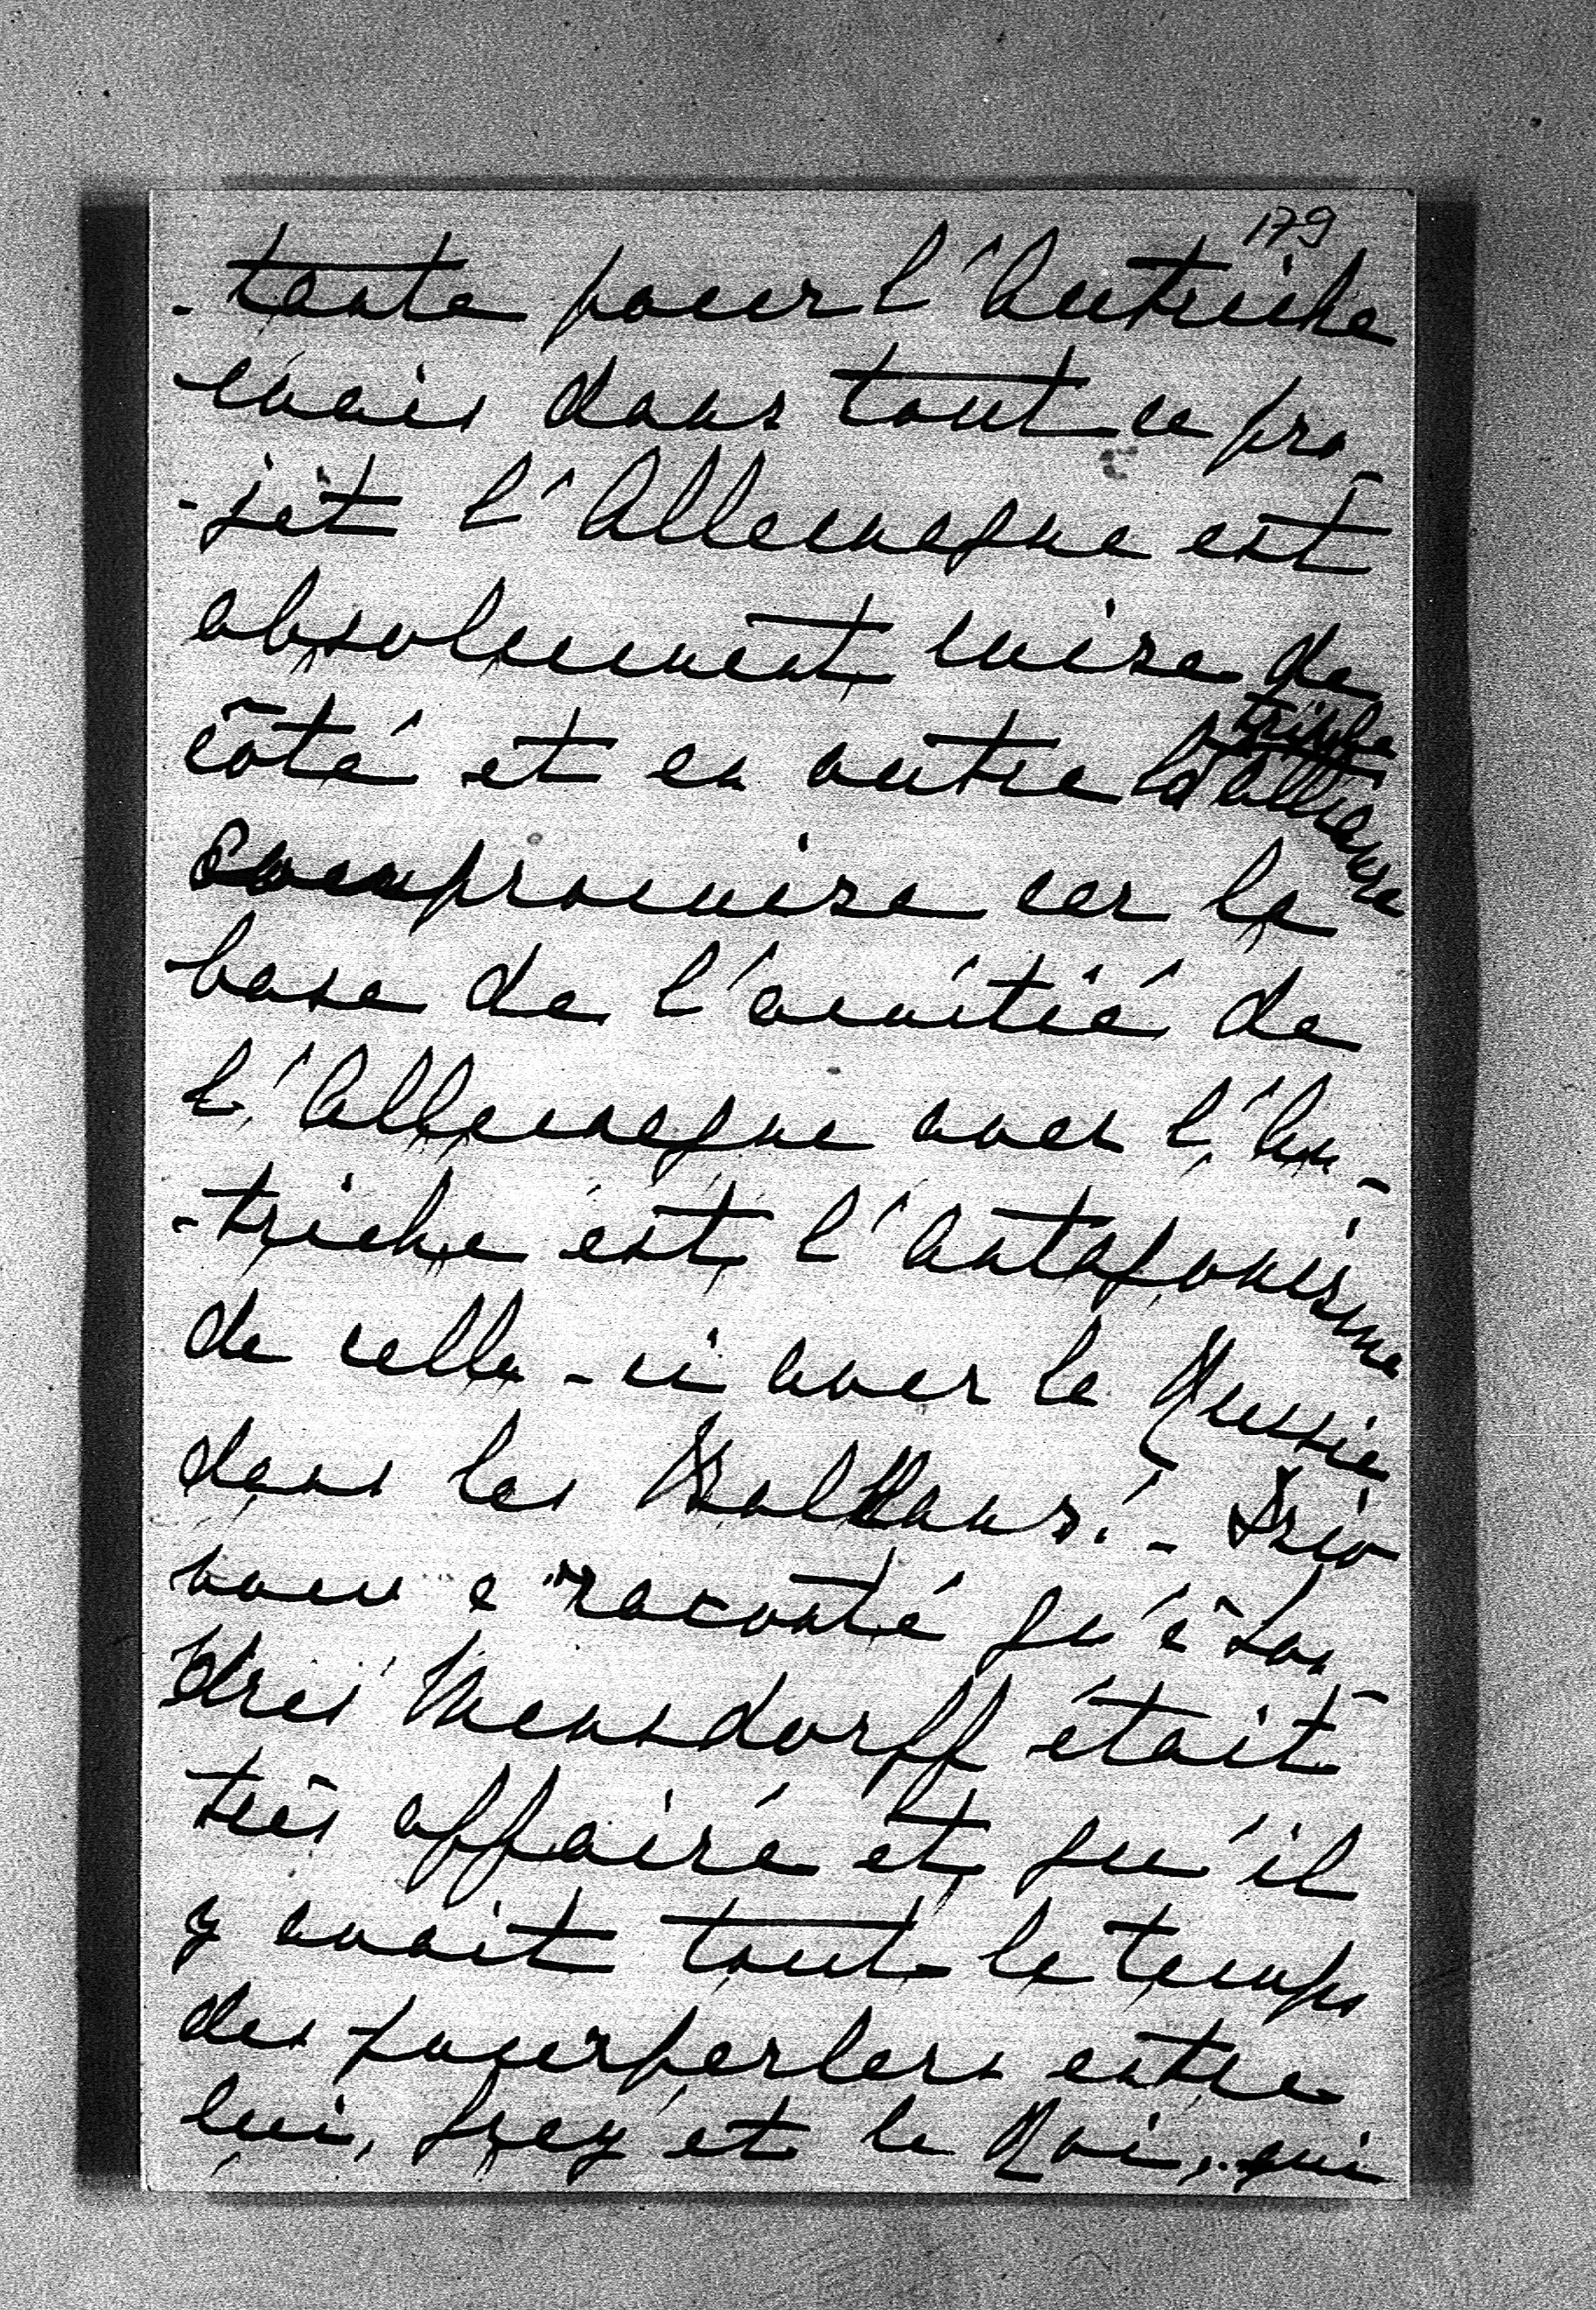 179
-tente pour l'Autriche
mais dans tout ce pro-
-jet l'Allemagne est
absolument mise de
côté et en outre la triple alliance
compromise car la
base de l'amitié de
l'Allemagne avec l'Au-
-triche est l'antagonisme
de celle-ci avec la Russie
dans les Balkans. - Bilio
vous a raconté qu'à Lon-
dres Mensdorff était
très affairé et qu'il
y avait tout le temps
des pourparlers entre
lui, Grey et le Roi, qui